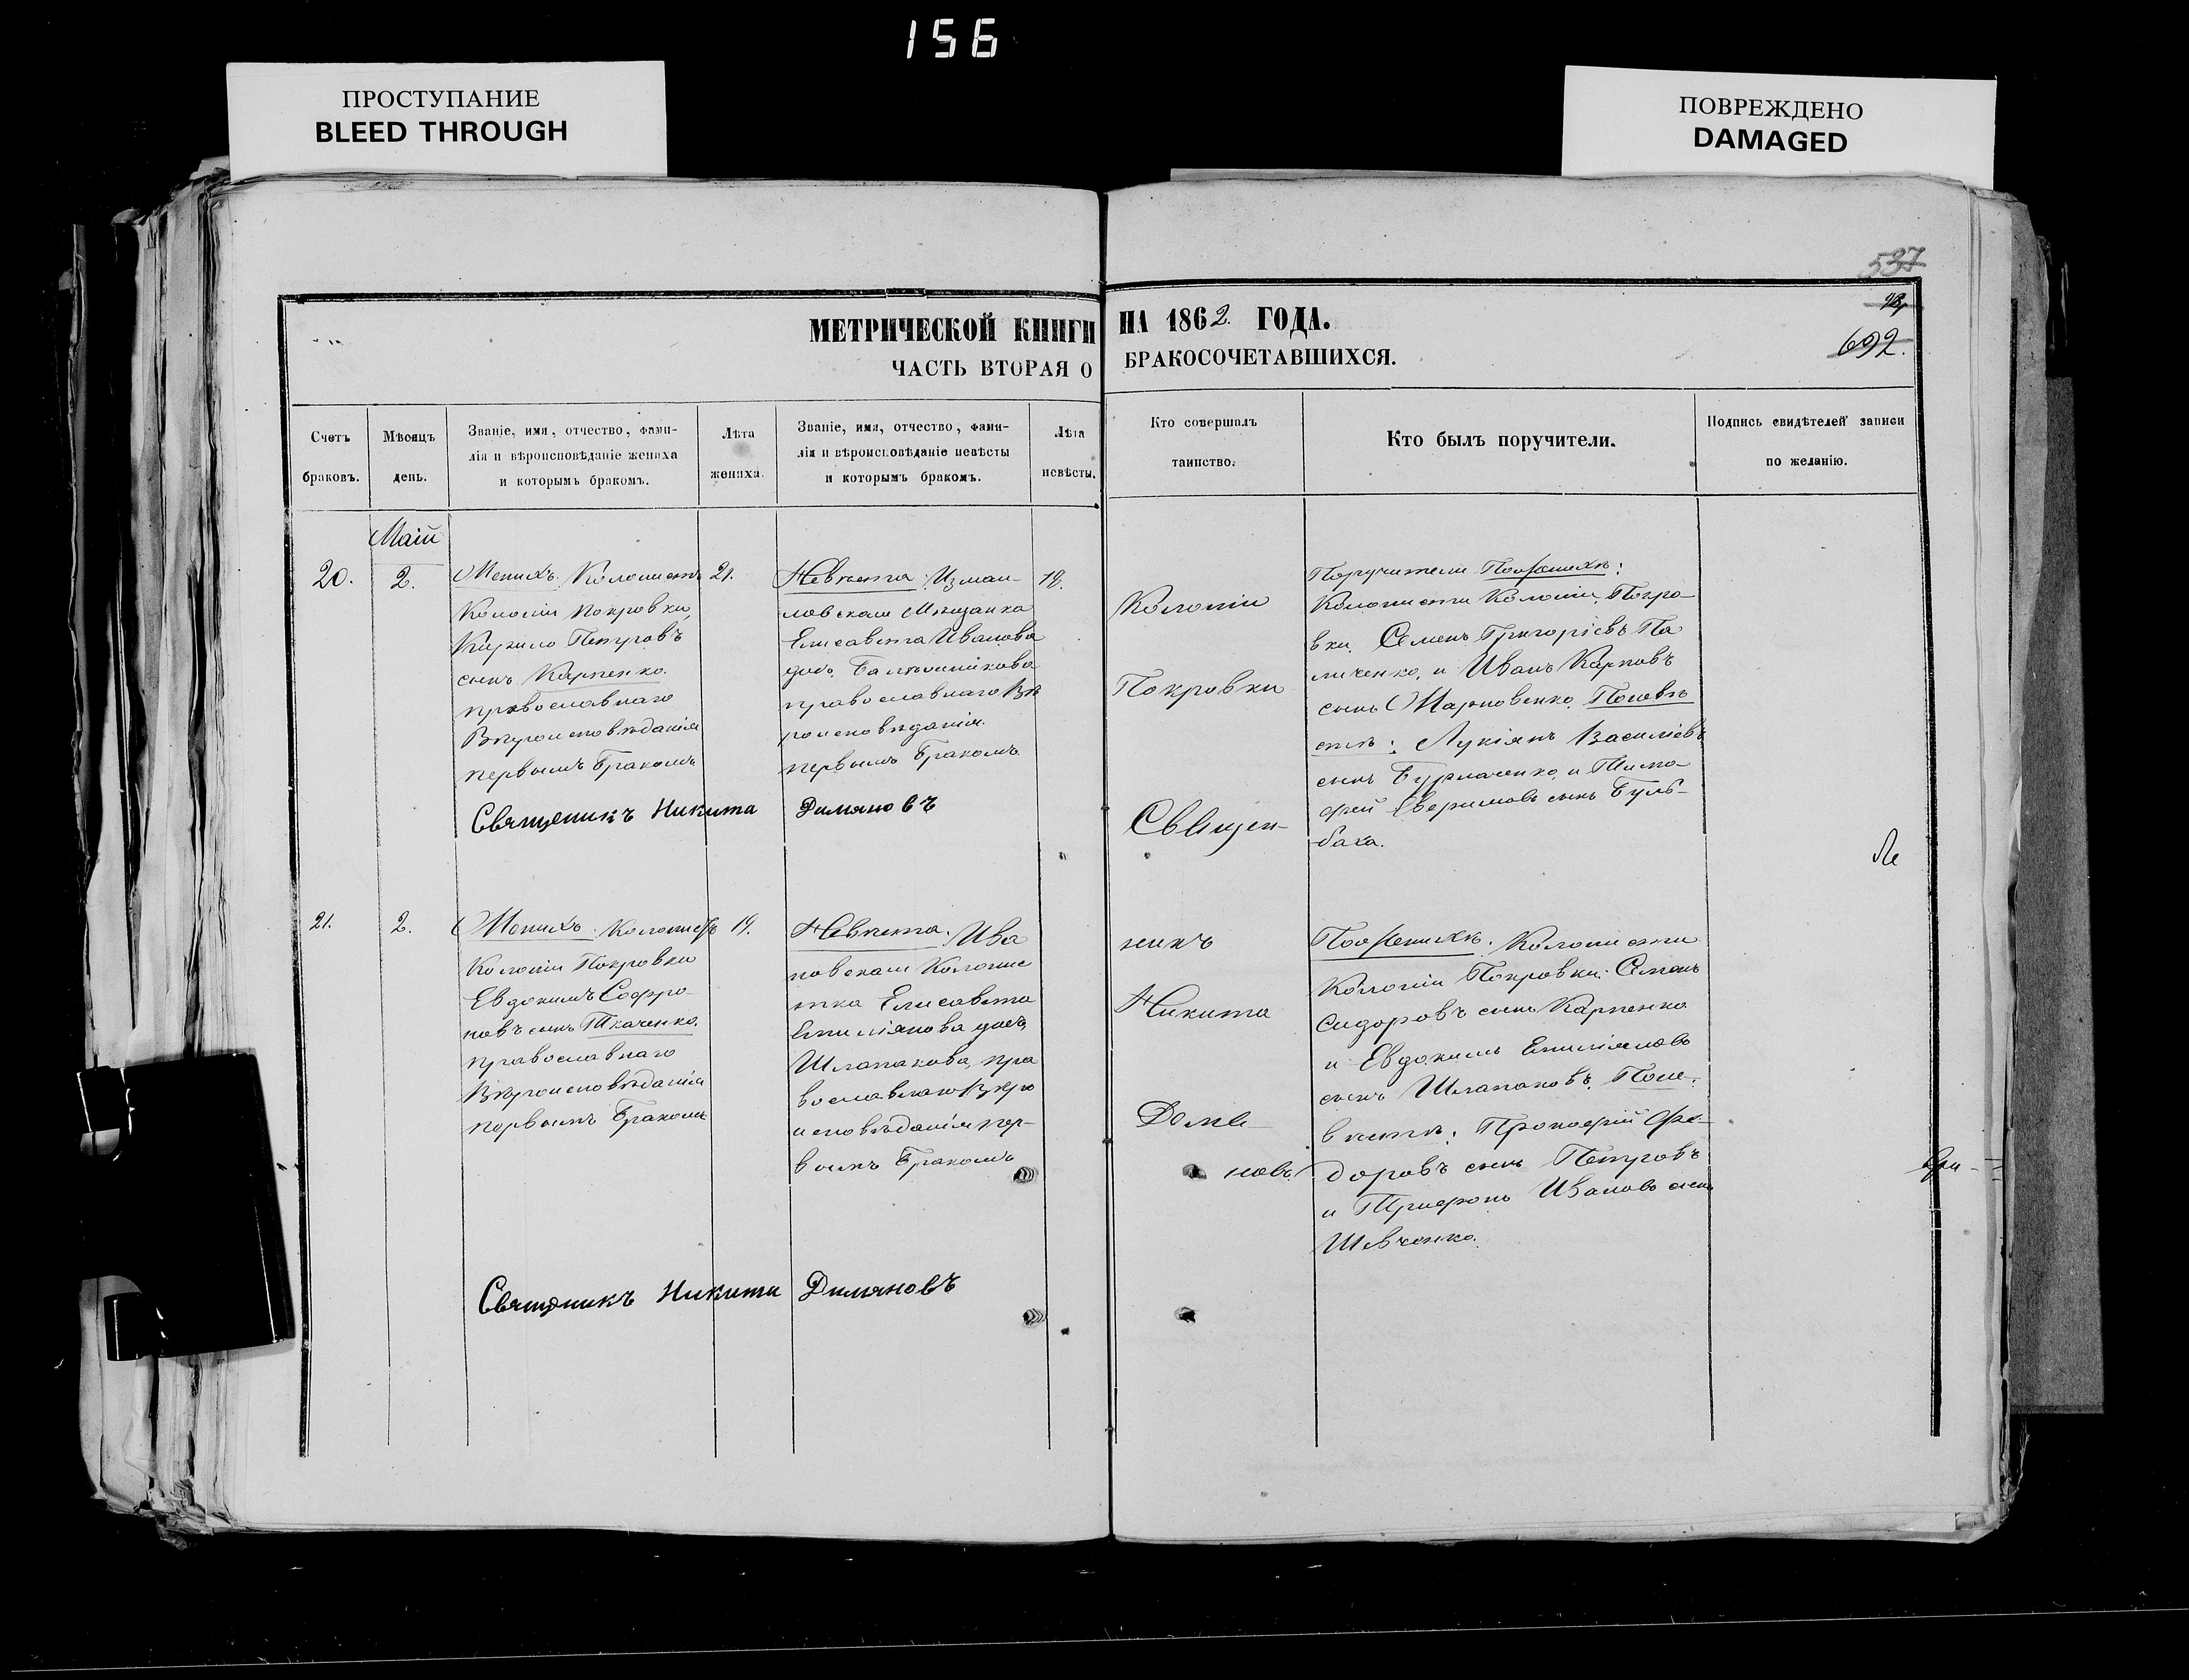 156
ПРОСТУПАНИЕ
BLEED THROUGH
ПОВРЕЖДЕНО
DAMAGED
537
692.
МЕТРИЧЕСКОЙ КНИГИ НА 1862 ГОДА.
ЧАСТЬ ВТОРАЯ О БРАКОСОЧЕТАВШИХСЯ.
Счетъ
браковъ.
Мѣсяцъ
день.
Званіе, имя, отчество, фами-
лія и вѣроисповѣданіе жениха
и которымъ бракомъ.
Лѣта
жениха.
Званіе, имя, отчество, фами-
лія и вѣроисповѣданіе невѣсты
и которымъ бракомъ.
Лѣта
невѣсты.
Кто совершалъ
таинство.
Кто былъ поручители.
Подпись свидѣтелей записи
по желанію.
Маій
20.
2.
Женихъ: Колонистъ
Колоніи Покровки,
Кирило Петровъ
сынъ Карпенко.
православнаго
Вѣроисповѣданія
первымъ бракомъ
21.
Невѣста: Измаи-
ловская Мѣщанка
Елисавета Иванова
дочь
православнаго Вѣ
роисповѣданія.
первымъ бракомъ
18.
Священикъ Никита Димяновъ
Колоніи
Покровки
Священ-
никъ
Никита
Демя-
новъ
Поручители По женихѣ:
Колонисты Колоніи Покро-
вки Семенъ Григорієвъ Па
личенко, и Иванъ Карповъ
сынъ Марповенко. Поневѣ
стѣ: Лукіянъ Василіевъ
сынъ Бурлаченко и Тимо-
фей сынъ Буль-
бака.
21.
2.
Женихъ: Колонистъ
Колоніи Покровки
Евдокимъ Софро-
новъ сынъ Ткаченко.
православнаго
Вѣроисповѣданія
первымъ бракомъ
19.
Невѣста: Ива
новская Колонис
тка Елисавета
Емиліянова дочь
Шлапакова, пра
вославнаго Вѣро
исповѣданія пер-
вымъ бракомъ
Священикъ Никита Димяновъ
По женихѣ: Колонисты
Колоніи Покровки: Семенъ
Сидоровъ сынъ Карпенко
и Евдокимъ Емиліяновъ
сынъ Шлапаковъ. Поне-
вѣстѣ: Прокофій Фе-
доровъ сынъ Петровъ
и Трифонъ Ивановъ сынъ
Шевченко.